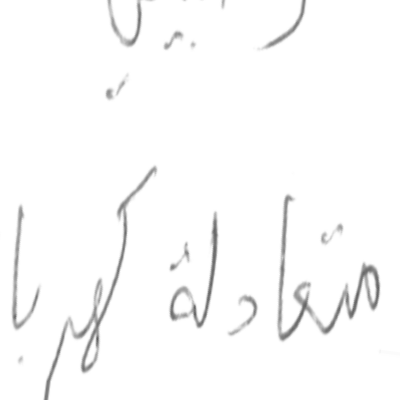 متعادلة كهربا